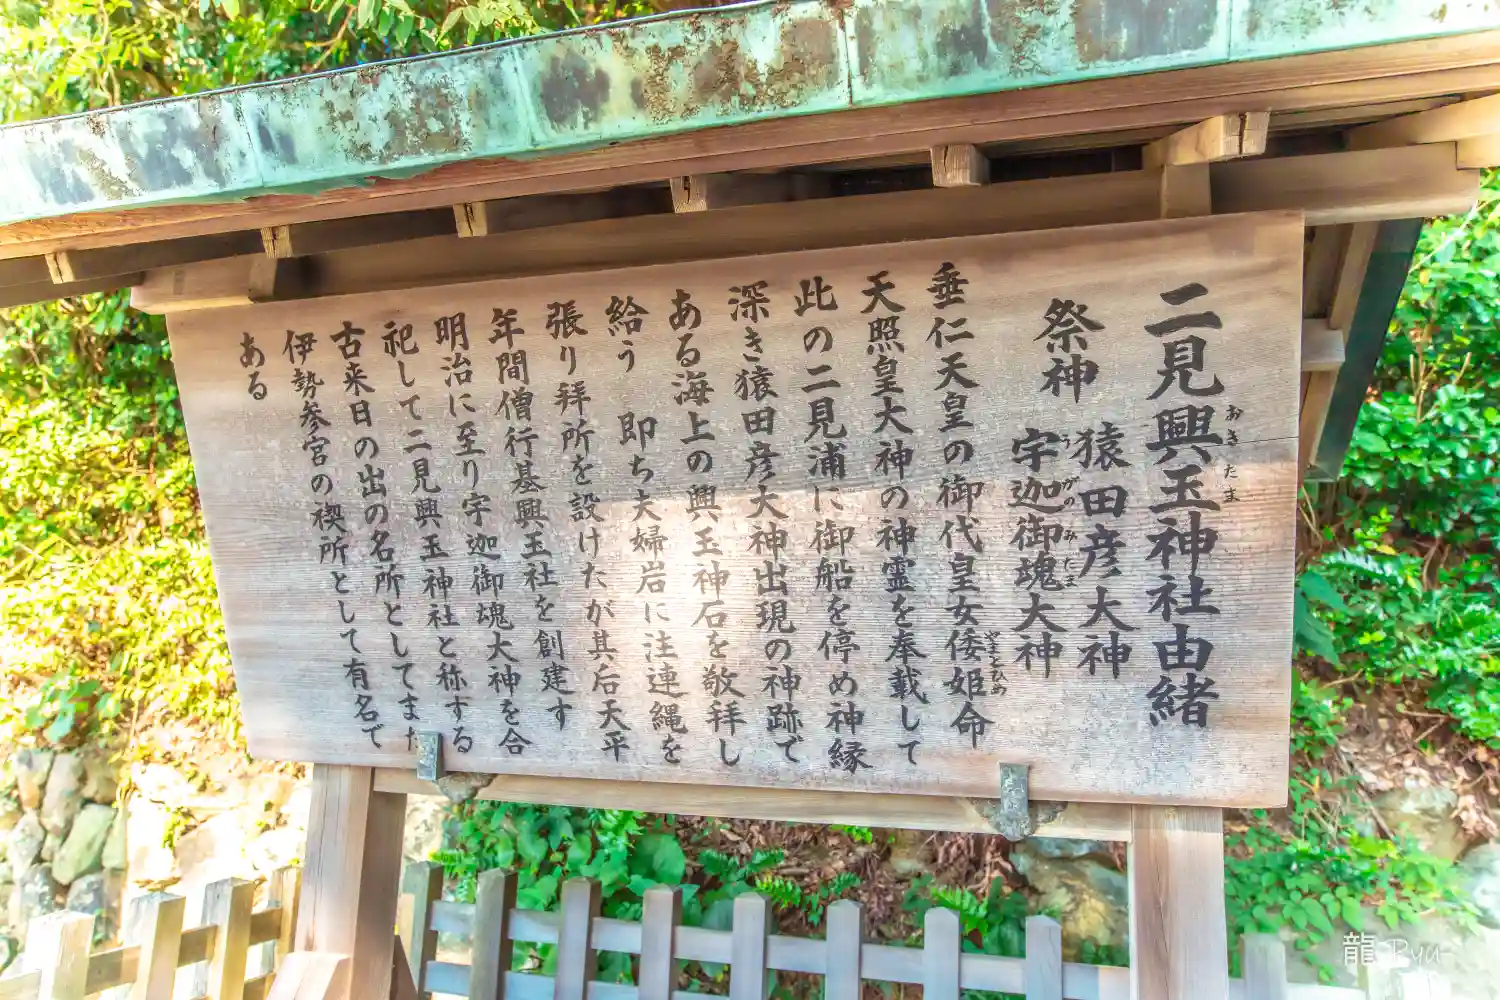 二見興玉神社由緒
おきたま
祭神 猿田彦大神
宇迦御魂大神
うがのみたま
垂仁天皇の御代皇女倭姫命
やまとひめ
天照皇大神の神霊を奉載して
此の二見浦に御船を停め神縁
深き猿田彦大神出現の神跡で
ある海上の興玉神石を敬拝し
給う 即ち夫婦岩に注連縄を
張り拝所を設けたが其后天平
年間僧行基興玉社を創建す
明治に至り宇迦御魂大神を合
祀して二見興玉神社と称する
古来日の出の名所としてまた
伊勢参宮の禊所として有名で
ある
龍 Ryu